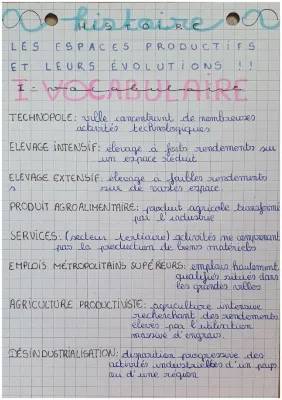 histoire
HISTOIRE
LES ESPACES PRODUCTIFS
ET LEURS ÉVOLUTIONS !!
I - vocabulaire
VOCABULAIRE
TECHNOPOLE: ville concentrant de nombreuses
activités technologiques
ELEVAGE INTENSIF: elevage à forts rendements sur
un espace réduit
ELEVAGE EXTENSIF: elevage à faibles rendements
s sur de vastes espace.
PRODUIT AGROALIMENTAIRE: produit agricole transformé
par l'industrie
SERVICES: (secteur tertiaire) activités ne comprenant
pas la production de biens materiels
EMPLOIS MÉTROPOLITAINS SUPÉRIEURS: emplois hautement
qualifiés situés dans
les grandes villes
AGRICULTURE PRODUCTIVISTE: agriculture intensive
recherchant des rendements
élevés par l'utilisation
massive d'engrais.
DÉSINDUSTRIALISATION: disparition progressive des
activités industrielles d'un pays
ou d'une région